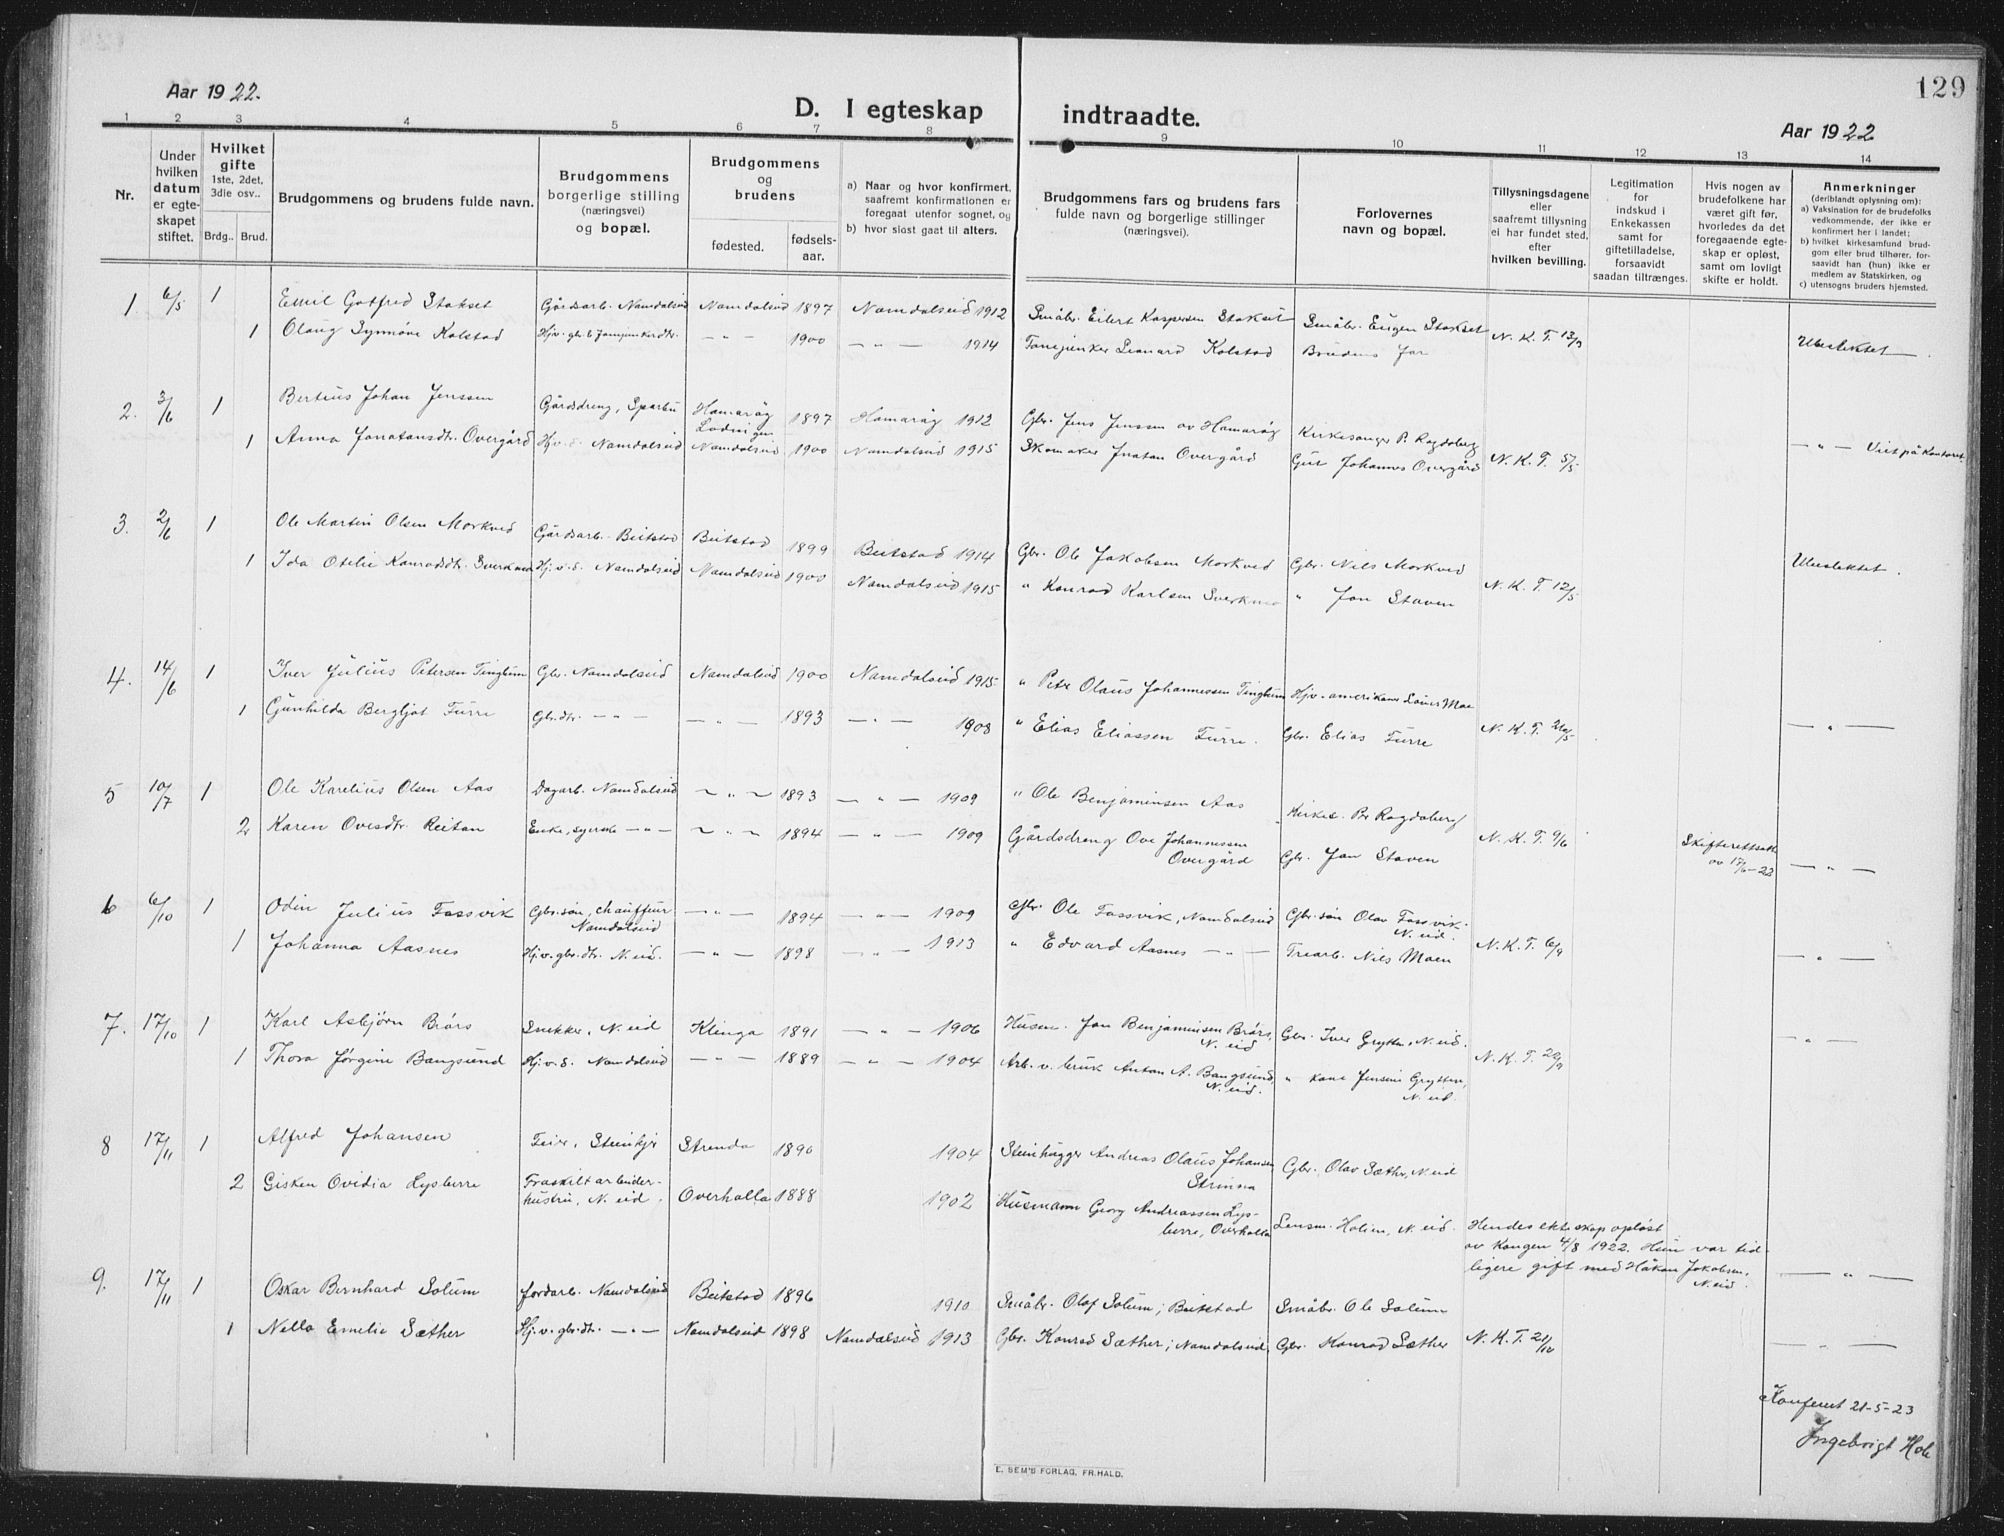 129
Aar 1922.
D. I egteskap indtraadte.
Aar 1922
1 2 3 4 5 6 7 8 9 10 11 12 13 14
Nr.
Under hvilken datum er egteskapet stiftet.
Hvilket gifte 1ste, 2det, 3die osv..
Brdg.. Brud.
Brudgommens og brudens fulde navn.
Brudgommens borgerlige stilling (næringsvei) og bopæl.
Brudgommens og brudens
fødested. fødsels-aar.
a) Naar og hvor konfirmert, saafremt konfirmationen er foregaat utenfor sognet, og
b) hvor sidst gaat til alters.
Brudgommens fars og brudens fars fulde navn og borgerlige stillinger (næringsvei).
Forlovernes navn og bopæl.
Tillysningsdagene eller saafremt tillysning ei har fundet sted, efter hvilken bevilling.
Legitimation for indskud i Enkekassen samt for giftetilladelse, forsaavidt saadan tiltrænges.
Hvis nogen av brudefolkene har været gift før, hvorledes da det foregaaende egteskap er opløst, samt om lovligt skifte er holdt.
Anmerkninger (deriblandt oplysning om):
a) Vaksination for de brudefolks vedkommende, der ikke er konfirmert her i landet;
b) hvilket kirkesamfund brudgom eller brud tilhører, forsaavidt han (hun) ikke er medlem av Statskirken, og
c) utensogns bruders hjemsted.
1 6/5 1 Emil Gotfred Stokset Gårdsarb. Namdalseid Namdalseid 1897 Namdalseid 1912 Småbr. Eilert Kaspersen Stokset Småbr. Eugen Stokset N. K. T. 13/3
1 Olaug Synnöve Kolstad — " — 1900 — " — 1914 Leonard Kolstad Brudens far Ubeslektet
2. 3/6 1 Bertius Johan Jenssen Gårdsdreng, Sparbu Hamarøg Lødingen 1897 Hamarøg 1912 Gbr. Jens Jenssen av Hamarøg Kirkesanger P. Ragdoberg
1 Anna Jonatansdtr. Overgård Hj.v.d. Namdalseid Namdalseid 1900 Namdalseid 1915 Skomaker Jnatan Overgård Gut Johannes Overgård N. K. T. 5/5 — " — Viet på kontoret.
3. 2/6 1 Ole Martin Olsen Morkved Gårdsarb. Beitstad Beitstad 1899 Beitstad 1914 Gbr. Ole Jakobsen Morkved Gbr. Nils Morkved
1 Ida Otelie Konradsdtr. Sverkmo Hj.v.d. Namdalseid Namdalseid 1900 Namdalseid 1915 " Konrad Karlsen Sverkmo " Jon Staven N. K. T. 12/5 Ubeslektet.
4. 14/6 1 Iver Julius Petersen Tinglum Gbr. Namdalseid Namdalseid 1900 Namdalseid 1915 " Petr Olaus Johannessen Tinglum Hjv. amerikaner Louis Moe
1 Gunhilda Bergljot Furre Gbr.dtr. — " — — " — 1893 — " — 1908 " Elias Eliassen Furre. Gbr. Elias Furre N. K. T. 20/5 — " —
5 10/7 1 Ole Karelius Olsen Aas Dagarb. Namdalseid — " — 1893 — " — 1909 " Ole Benjaminsen Aas Kirkes. Pr Ragdoberg
2 Karen Ovesdtr. Reitan Enke, syerske — " — — " — 1894 — " — 1909 Gårdsdreng Ove Johannessen Overgård Gbr. Jon Staven N. K. T. 9/6 Skifterettsatt. av 17/6-22 — " —
6 6/10 1 Odin Julius Fossvik Gbr.søn, chauffeur Namdalseid — " — 1894 — " — 1909 Gbr. Ole Fossvik, Namdalseid Gbr.søn Olav Fossvik. N. eid.
1 Johanna Aasnes Hj.v. gbr.dtr. N. eid. — " — 1898 — " — 1913 " Edvard Aasnes — " — Trearb. Nils Moen N. K. T. 6/9 — " —
7. 17/10 1 Karl Asbjørn Brörs Snekker, N. eid Klinga 1891 — " — 1906 Husm. Jon Benjaminsen Brörs, N. eid Gbr. Iver Grytten, N. eid.
1 Thora Jørgine Bangsund Hj.v.d. Namdalseid — " — 1889 — " — 1904 Arb. v. bruk Anton A. Bangsund, N. eid. " kone Jensine Grytten, N. eid. N. K. T. 20/9 — " —
8 17/11 1 Alfred Johansen Feier, Steinkjer Strinda 1890 1904 Steinhugger Andreas Olaus Johansen Strinda Gbr. Olav Sæther, N. eid
2 Gisken Ovidia Lysberre Fraskilt arbeiderhustru, N. eid. Overhalla 1888 1902 Husmann Georg Andreassen Lysberre, Overhalla Lensm. Holien, N. eid. Hendes ekteskap opløst av Kongen 4/8 1922. Hun var tidligere gift med Håkon Jakobsen, N. eid. — " —
9. 17/11 1 Oskar Bernhard Solum Jordarb. Namdalseid Beitstad 1896 1910 Småbr. Olaf Solum, Beitstad Småbr. Ole Solum
1 Nella Emelie Sæther Hj.v. gbr.dtr. — " — Namdalseid 1898 Namdalseid 1913 Gbr. Konrad Sæther, Namdalseid Gbr. Konrad Sæther N. K. T. 21/10 — " —
Konferert 21-5-23
Ingebrigt Hole
E. SEM'S FORLAG, FR.HALD.